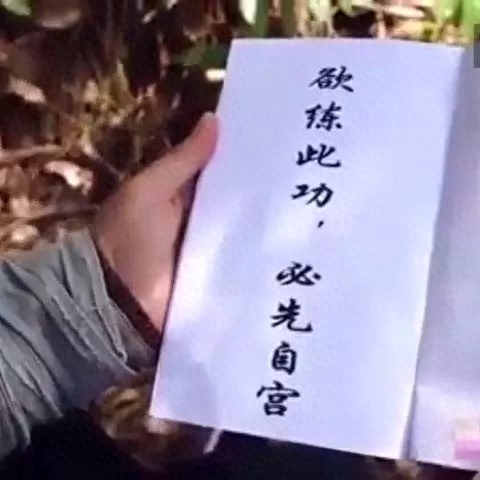 欲练此功，必先自宫